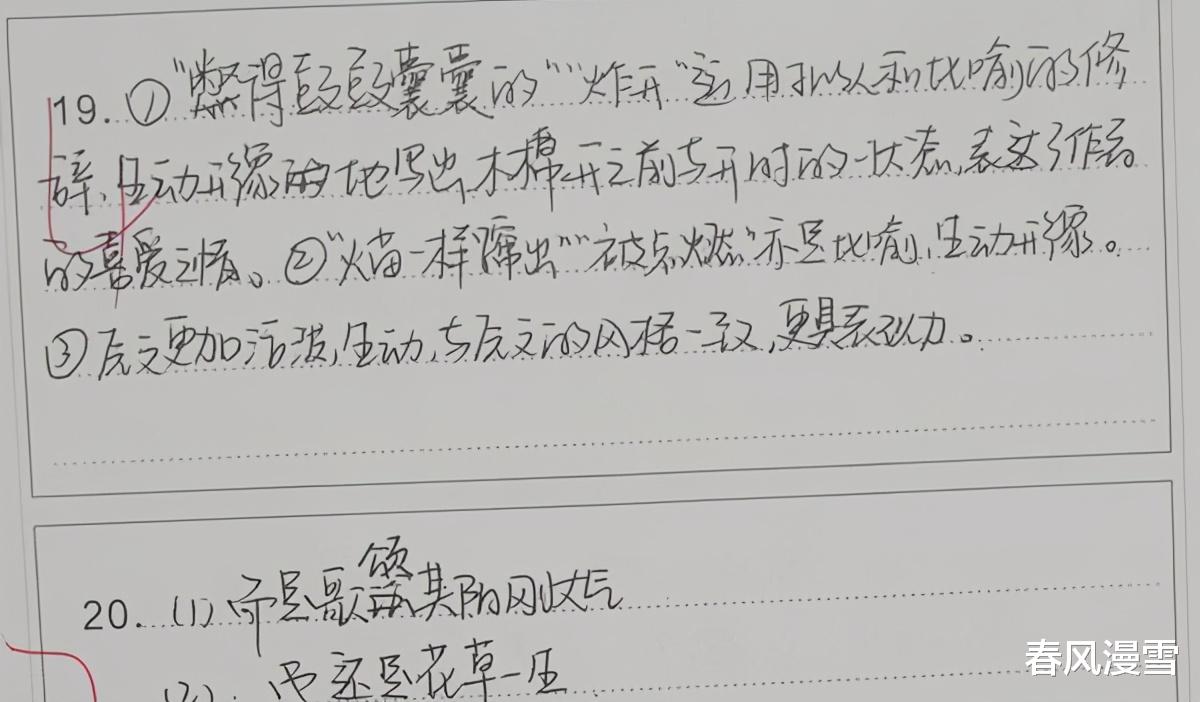 19. ①“憋得鼓鼓囊囊的”“炸开”运用拟人和比喻的修
辞,生动形象的地写出木棉开之前与开时的状态,表达了作者
的喜爱之情。②“火苗一样蹿出”“被点燃”亦是比喻,生动形象。
③原文更加活泼,生动,与原文的风格一致,更具表现力。
20. (1) 而是歌颂其阳刚之气
(2). 而还是花草一生
春风漫雪